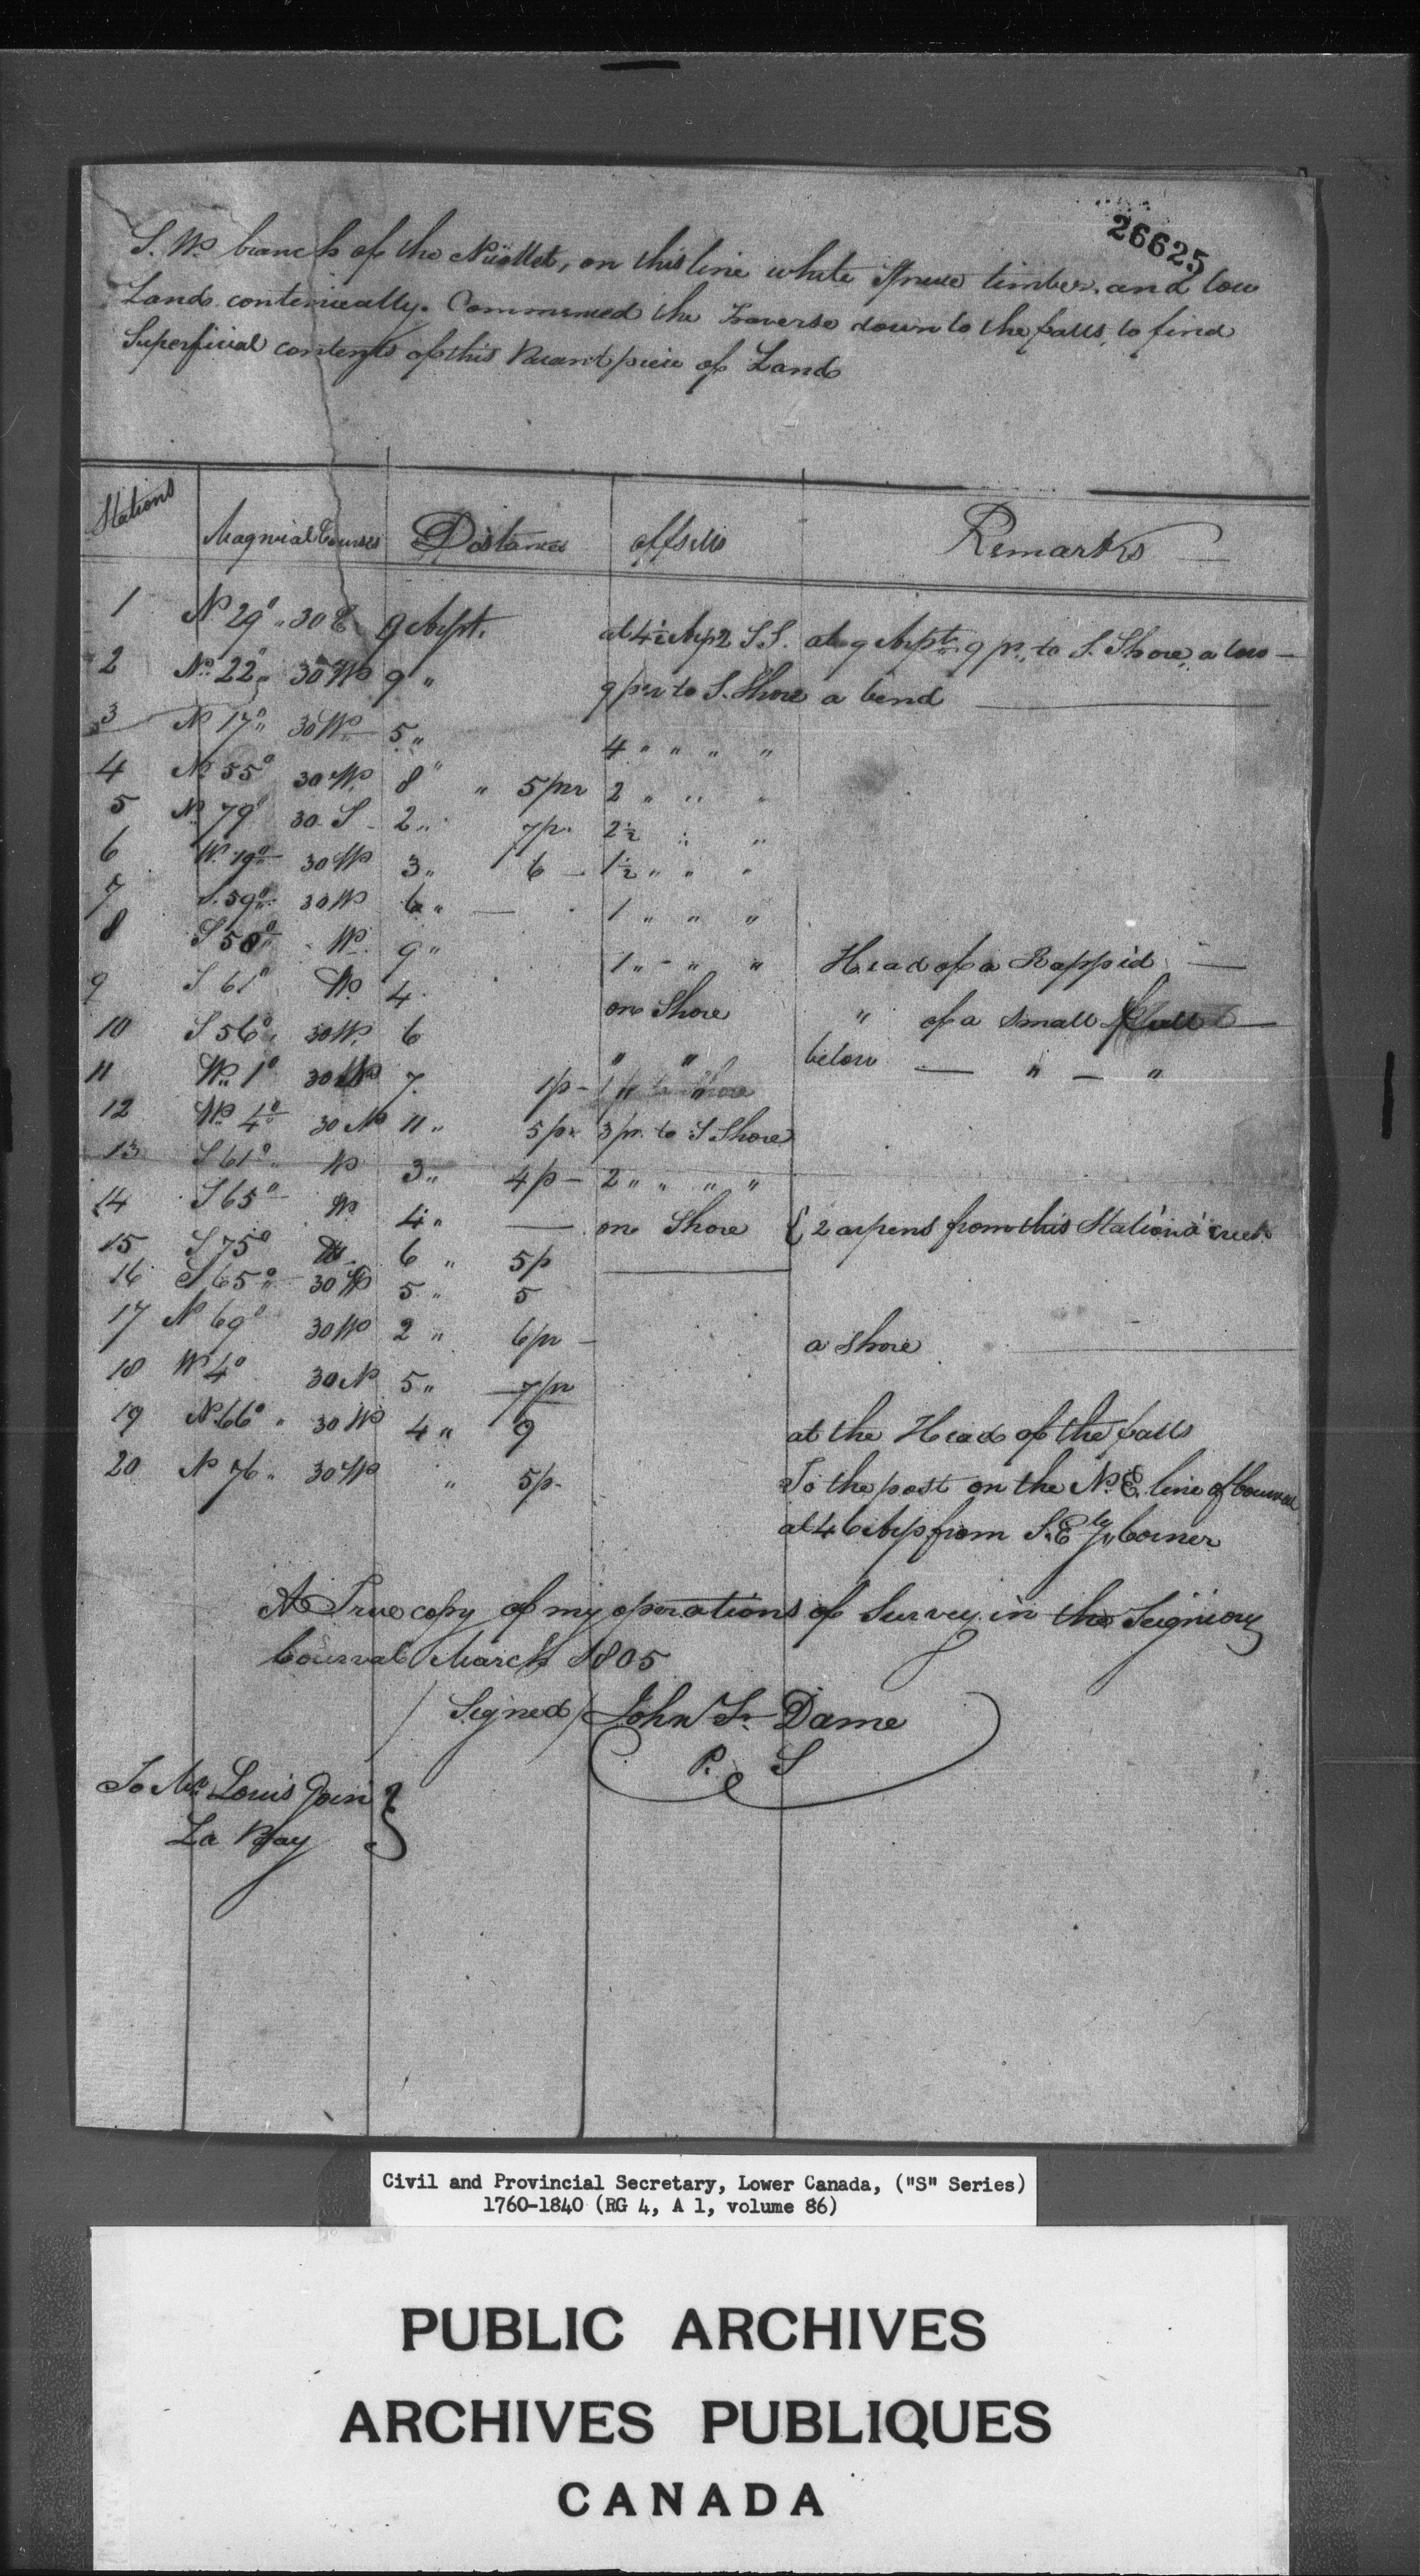 26625
S. W. branch of the Nicollet, on this line white Spruce timber and low
Lands continually. Commenced the Traverse down to the falls, to find
Superficial contents of this Vacant piece of Land
Stations Magnical Courses Distances offsets Remarks
1 N 29° 30 E 9 Arpt. at 4½ Arp 2 S.S. at 9 Arpts 9 pr. to S. Shore, a
2 N 22 30 W 9 " 9 prs to S. Shore a bend
3 N 17° 30 W 5 " 4 " " " "
4 N 55° 30 W 8 " " 5 prs 2 " " "
5 N 79° 30 S 2 " 7 p. 2½ " "
6 W. 19° 30 W 3 " 6 1½ " " "
7 S. 59° 30 W 6 " — 1 " " "
8 S 58° W. 9 " 1 " - " " Head of a Rappid —
9 S 61° W. 4 on Shore " of a Small —
10 S 56° 30 W. 6 " " below — " — "
11 W. 1° 30 7. 1 p -
12 W 4° 30 N 11 " 5 pr 3 pr. to S Shore
13 S 61° W 3 " 4 p - 2 " " " "
14 S 65° W 4 " — on Shore { 2 arpens from this Station a creek
15 S 75° W 6 " 5 p
16 S 65° 30 W 5 " 5
17 N 69° 30 W 2 " 6 pr - a Shore
18 W 4° 30 N 5 " 7 pr
19 N. 66° " 30 W 4 " 9 at the Head of the falls
20 N 76 " 30 W " 5 p. To the post on the N. E. line of Courval
at 46 Arp from S. E ly Corner
A True copy of my operations of Survey in the Seigniory
Courval March 1805
/Signed/ John St. Dame
P. S
To Mr. Louis
La Bay }
Civil and Provincial Secretary, Lower Canada, ("S" Series)
1760-1840 (RG 4, A 1, volume 86)
PUBLIC ARCHIVES
ARCHIVES PUBLIQUES
CANADA